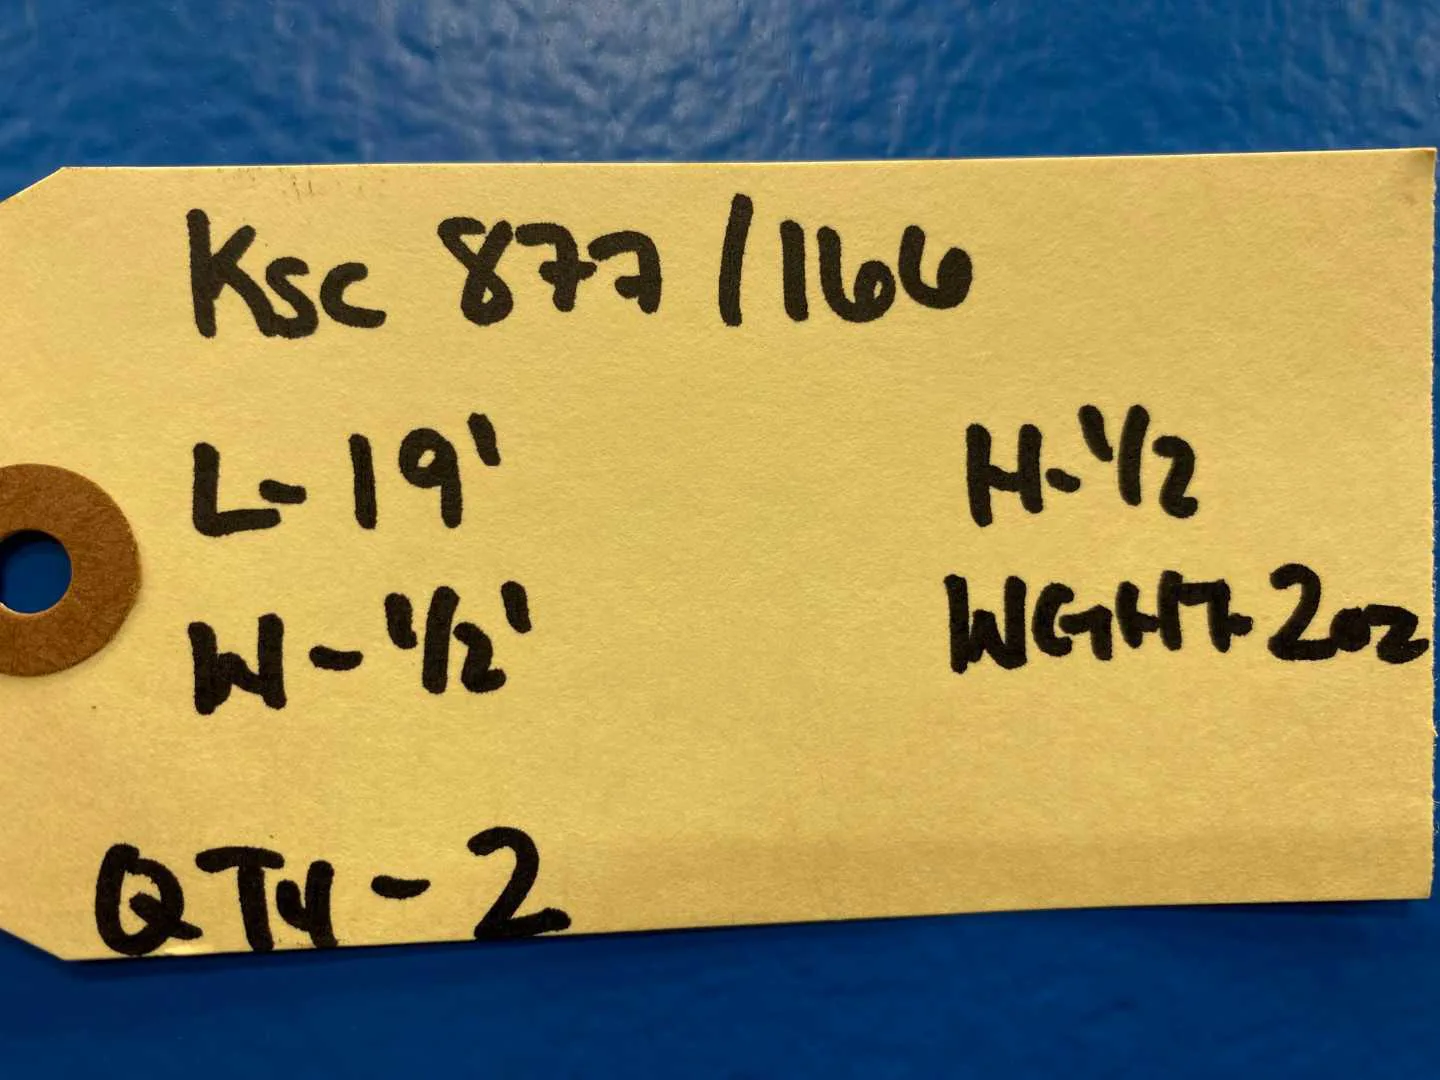 Ksc 877/166
L-19' H-1/2
W-1/2' WGHT-2oz
QTY-2